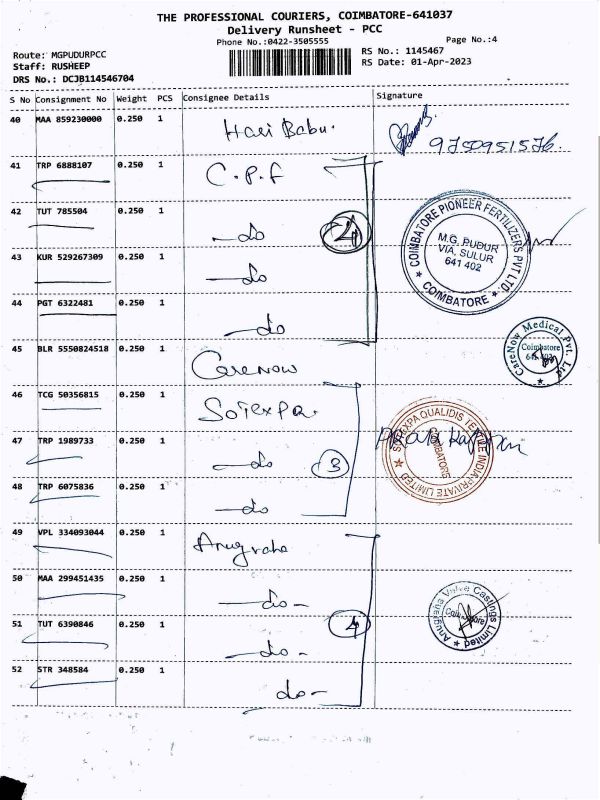 THE PROFESSIONAL COURIERS, COIMBATORE-641037
Delivery Runsheet - PCC
Phone No.:0422-3505555
Page No.:4
Route: MGPUDURPCC
Staff: RUSHEEP
DRS No.: DCJB114546704
RS No.: 1145467
RS Date: 01-Apr-2023
S No Consignment No Weight PCS Consignee Details Signature
40 MAA 859230000 0.250 1 Hari Babu.
41 TRP 6888107 0.250 1 C.P.F
42 TUT 785504 0.250 1 —do
43 KUR 529267309 0.250 1 —do
44 PGT 6322481 0.250 1 —do
4
COIMBATORE PIONEER FERTILIZERS PVT LTD.
M.G. PUDUR
VIA. SULUR
641 402
★ COIMBATORE ★
45 BLR 5550824518 0.250 1 CareNow
CareNow Medical Pvt. Ltd
Coimbatore
641 402
★
46 TCG 50356815 0.250 1 Soiexpa.
47 TRP 1989733 0.250 1 —do
48 TRP 6075836 0.250 1 —do
3
QUALIDIS TEXTILE INDIA PRIVATE LIMITED ★
COIMBATORE
49 VPL 334093044 0.250 1 Anugraha
50 MAA 299451435 0.250 1 —do-
51 TUT 6390846 0.250 1 —do-
52 STR 348584 0.250 1 do-
4
Anugraha Valve Castings Limited ★
Coimbatore